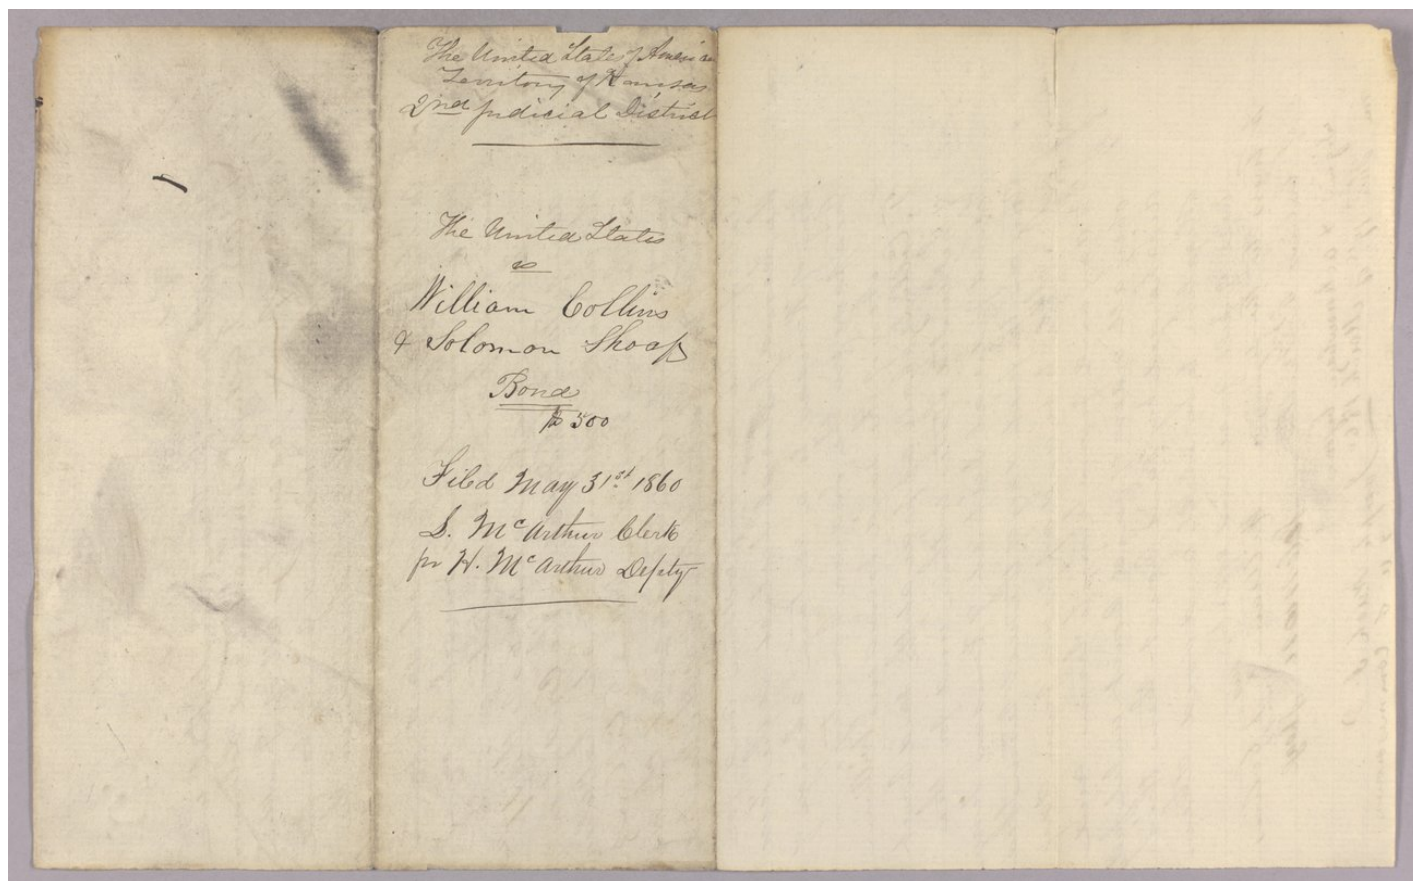 The United States of America
Territory of Kansas
2nd Judicial District
The United States
vs
William Collins
& Solomon Shoaf
Bond
$500
Filed May 31st 1860
L. McArthur Clerk
pr H. McArthur Depty